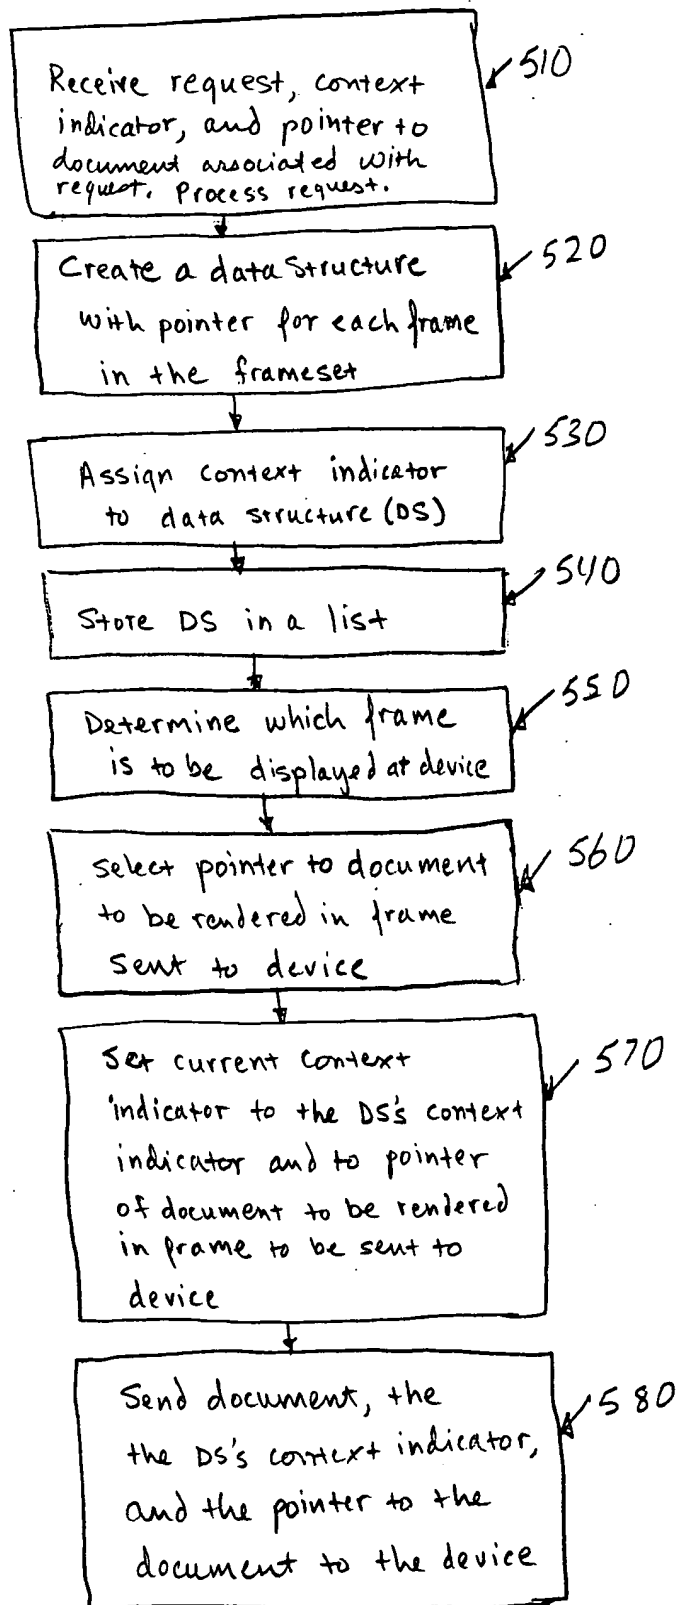 510
Receive request, context
indicator, and pointer to
document associated with
request. Process request.
520
Create a data structure
with pointer for each frame
in the frameset
530
Assign context indicator
to data structure (DS)
540
Store DS in a list
550
Determine which frame
is to be displayed at device
560
Select pointer to document
to be rendered in frame
sent to device
570
Set current context
indicator to the DS's context
indicator and to pointer
of document to be rendered
in frame to be sent to
device
580
Send document, the
the DS's context indicator,
and the pointer to the
document to the device